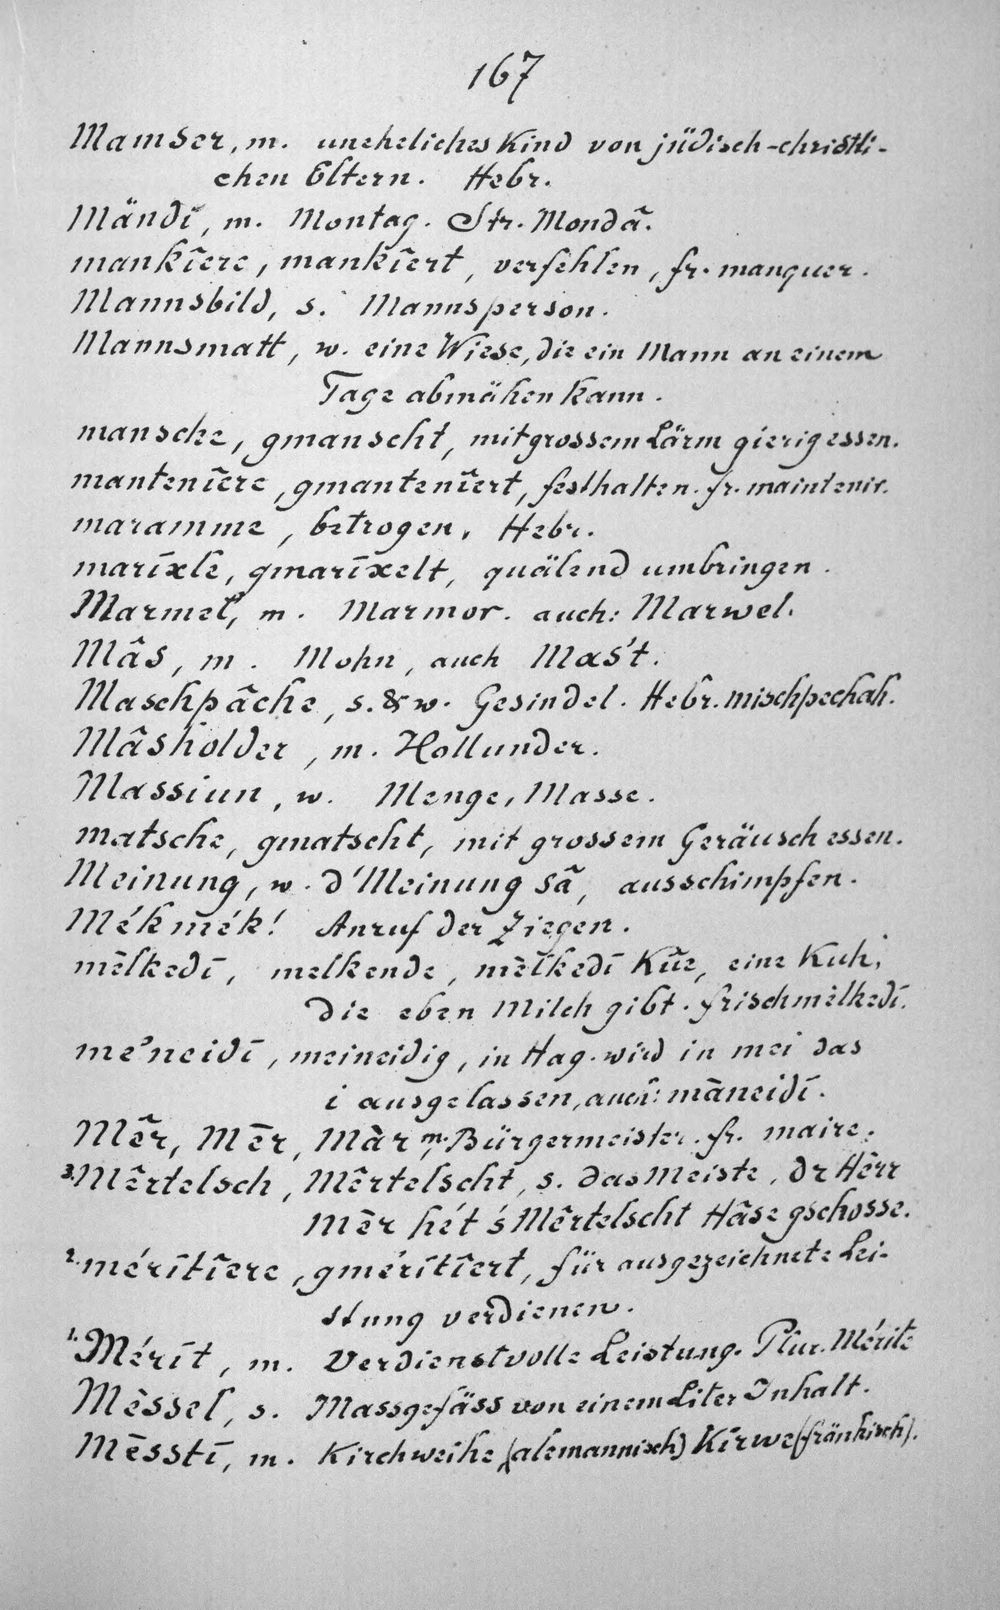 167
Mamser, m. uneheliches Kind von jüdisch-christli-
chen Eltern. Hebr.
Mändī, m. Montag. Str. Mondâ.
mankîere, mankîert, verfehlen, fr. manquer.
Mannsbild, s. Mannsperson.
Mannsmatt, w. eine Wiese, die ein Mann an einem
Tage abmähen kann.
mansche, gmanscht, mit grossem Lärm gierig essen.
mantenîere, gmantenîert, festhalten. fr. maintenir.
maramme, betrogen. Hebr.
marīxle, gmarīxelt, quälend umbringen.
Marmel, m. Marmor. auch: Marwel.
Mâs, m. Mohn, auch Mas't.
Maschpâche, s. & w. Gesindel. Hebr. mischpechah.
Mâsholder, m. Hollunder.
Massiun, w. Menge, Masse.
matsche, gmatscht, mit grossem Geräusch essen.
Meinung, w. d'Meinung sâ, ausschimpfen.
Mék mék! Anruf der Ziegen.
mèlkedī, melkende, mèlkedī Kûe, eine Kuh,
die eben Milch gibt. frischmèlkedī.
me'neidī, meineidig, in Hag. wird in mei das
i ausgelassen, auch: màneidī.
Mêr, Mēr, Màr m. Bürgermeister. fr. maire.
3. Mêrtelsch, Mêrtelscht, s. das Meiste, dr Hêrr
Mēr hét 's Mêrtelscht Hâse gschosse.
2. mérītîere, gmérītîert, für ausgezeichnete Lei-
stung verdienen.
1. Mérīt, m. Verdienstvolle Leistung. Plur. Mérite
Mèssel, s. Massgefäss von einem Liter Inhalt.
Mèsstī, m. Kirchweihe (alemannisch) Kīrwe (fränkisch).